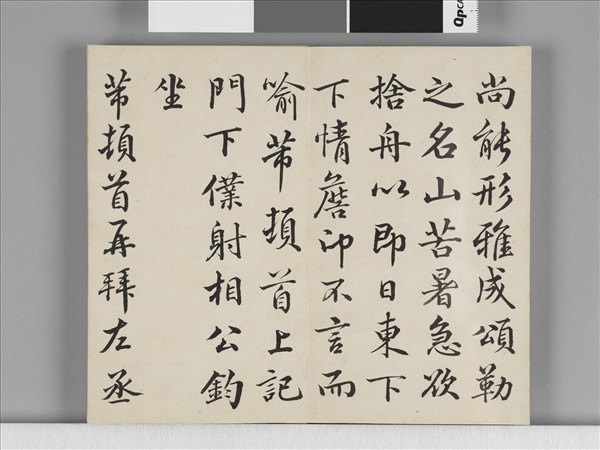 尚能形雅成頌勒
之名山苦暑急欲
捨舟以即日東下
下情詹卬不言而
喻芾頓首上記
門下僕射相公鈞
坐
芾頓首再拜左丞
QpCA